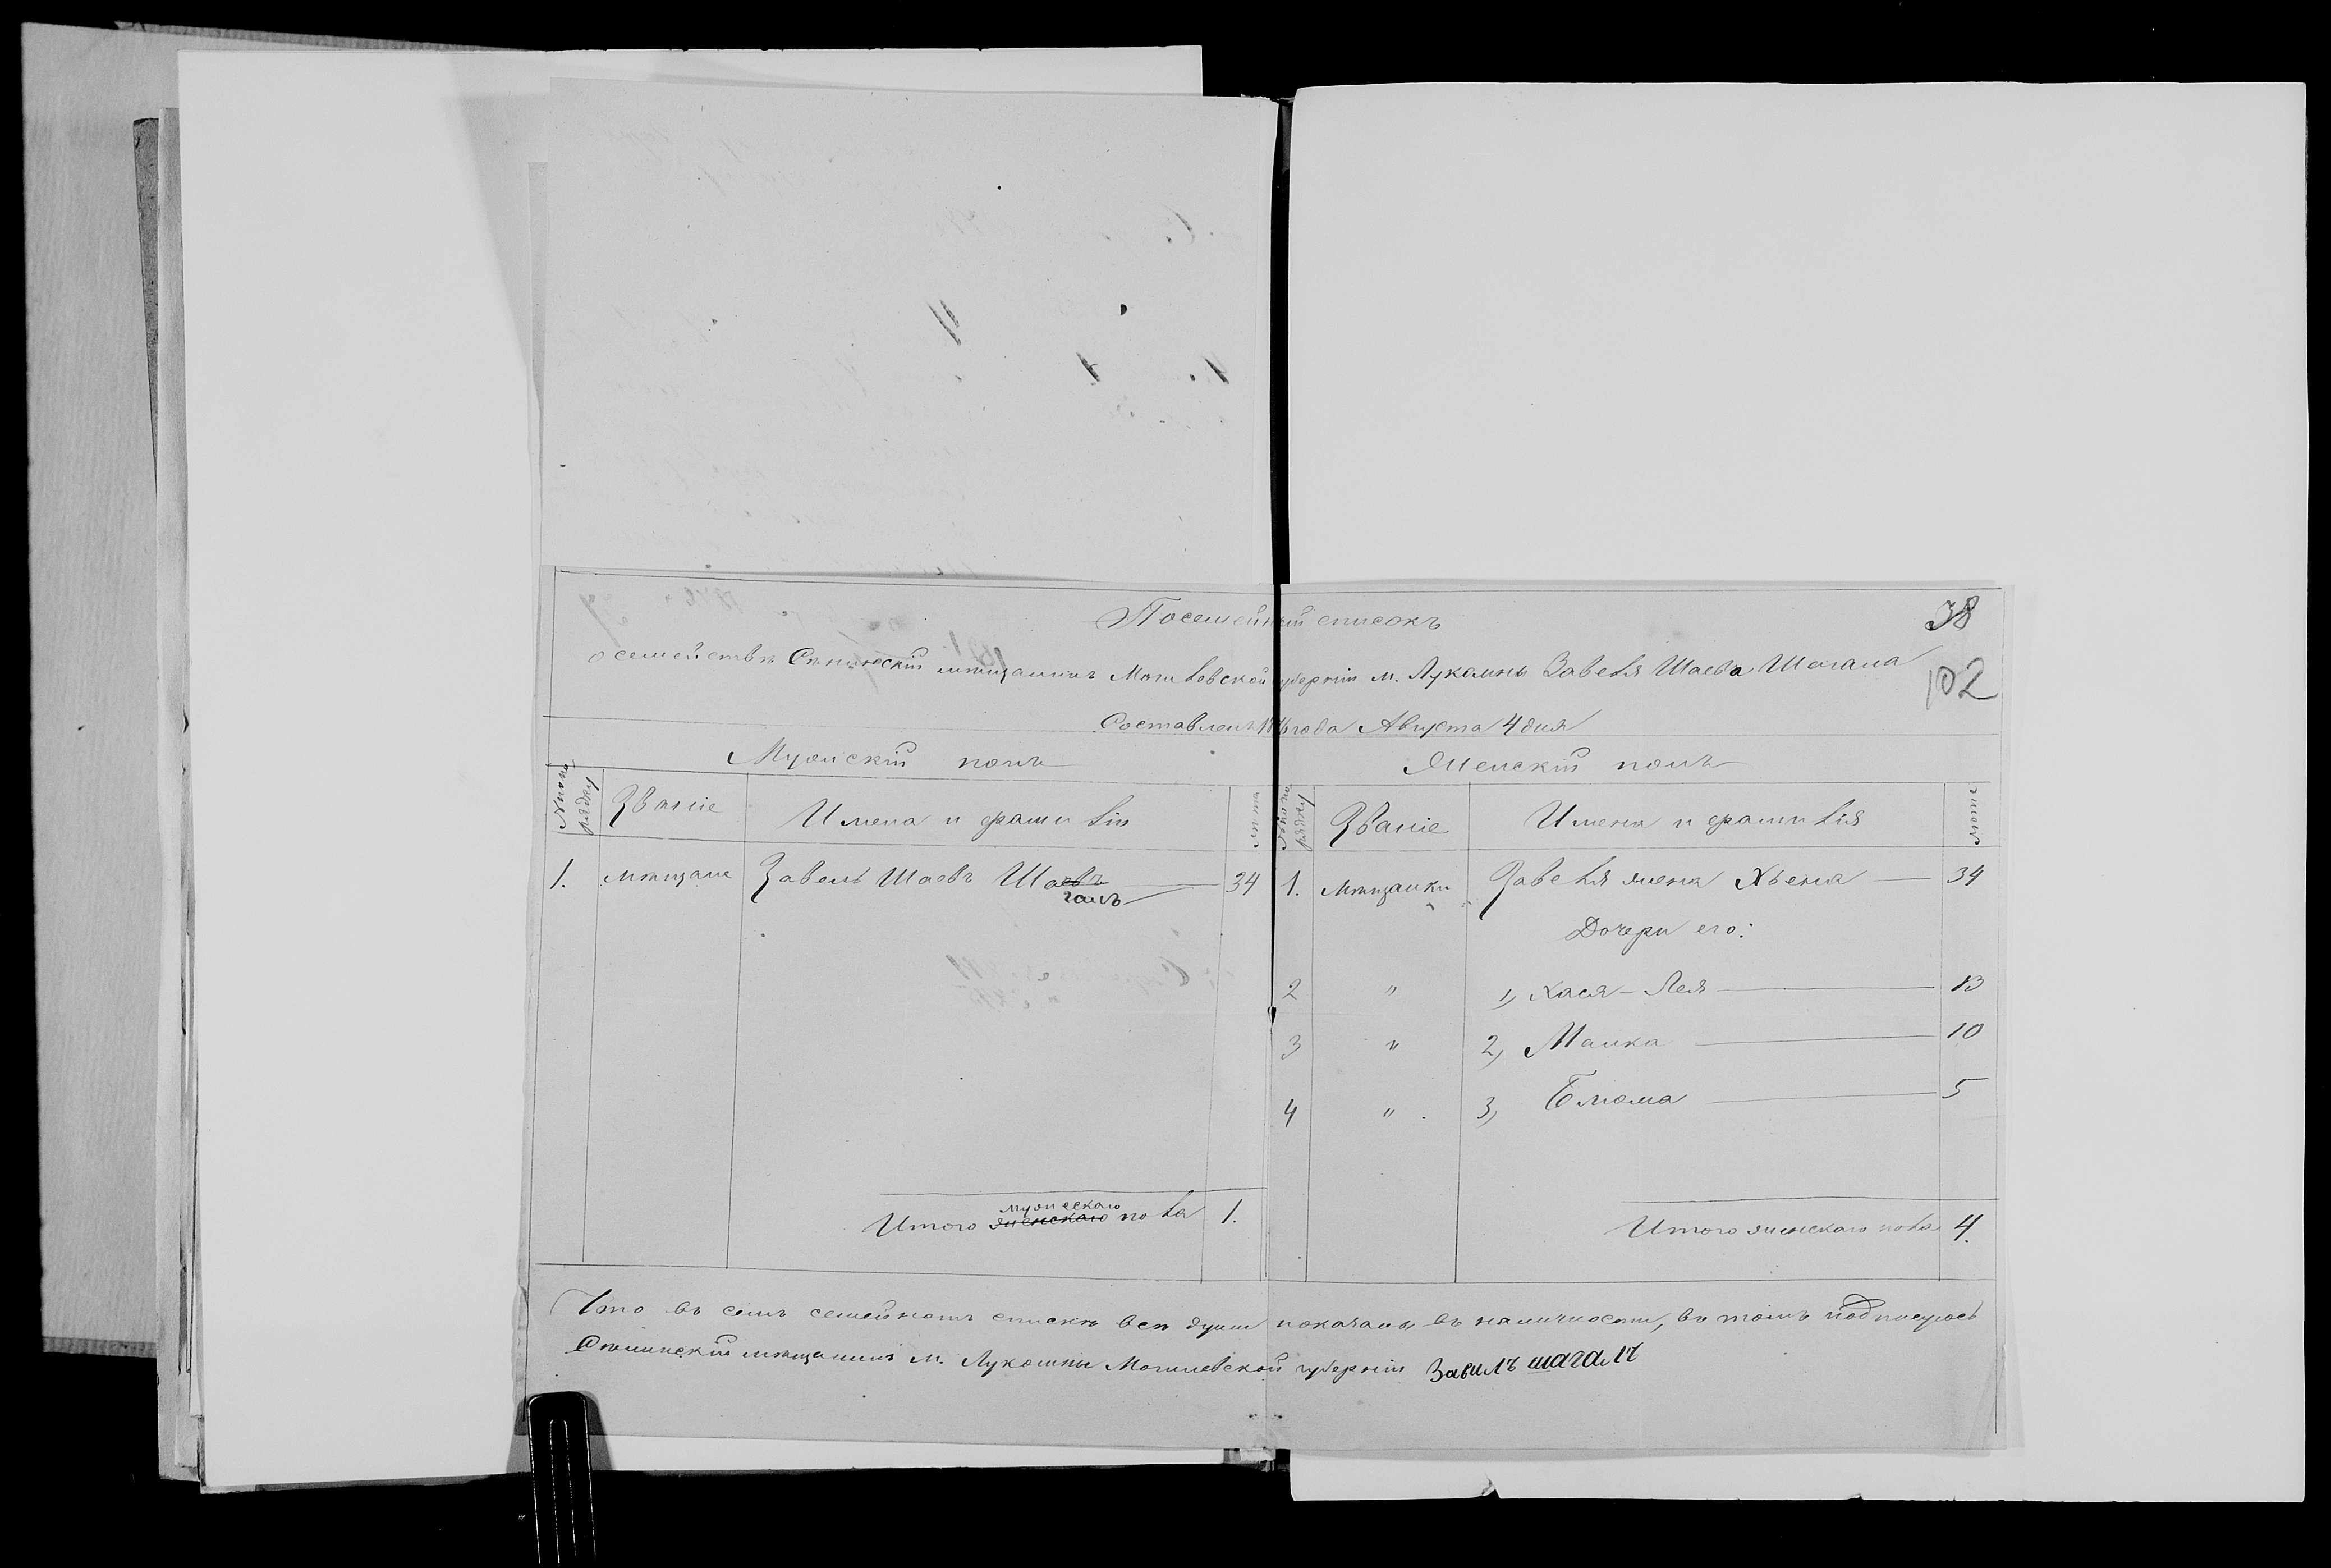 Посемейный списокъ
38
о семействѣ Сѣнинскій мѣщанинъ Могилевской губерніи м. Лукомль Завеля Шаева Шагала
102
Составленъ года Августа 4 дня
Мужскій полъ
Женскій полъ
№ по порядку Званіе Имена и фамиліи лѣта № по порядку Званіе Имена и фамилія лѣта
1. мѣщане Завель Шаевъ Шаевъ 34 1. Мѣщанки Завеля жена Хьена 34
галъ
Дочери его:
2 " 1, Хася-Лея 13
3 " 2, Манка 10
4 " 3, Блюма 5
мужескаго
Итого женскаго пола 1. Итого женскаго пола 4.
Что въ семъ семейномъ спискѣ всѣ души показаны въ наличности, въ томъ подписуюсь
Сѣнинскій мѣщанинъ м. Лукомли Могилевской губерніи Завилъ шагалъ